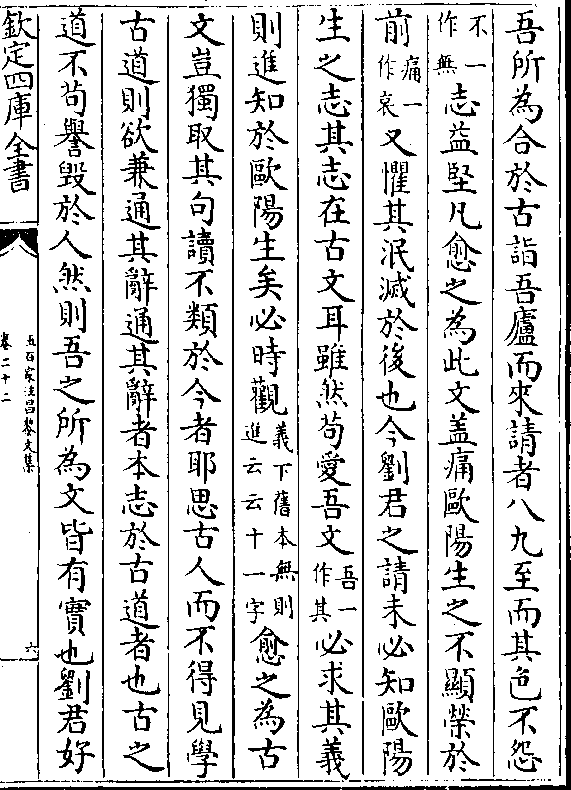 吾所為合於古詣吾廬而來請者八九至而其色不怨
不一作無志益堅凡愈之為此文盖痛歐陽生之不顯榮於
前痛一作哀又懼其泯滅於後也今劉君之請未必知歐陽
生之志其志在古文耳雖然苟愛吾文吾一作其必求其義
則進知於歐陽生矣必時觀義下舊本無則進云云十一字愈之為古
文豈獨取其句讀不類於今者耶思古人而不得見學
古道則欲兼通其辭通其辭者本志於古道者也古之
道不苟譽毀於人然則吾之所為文皆有實也劉君好
欽定四庫全書
五百家注昌黎文集
卷二十二
六